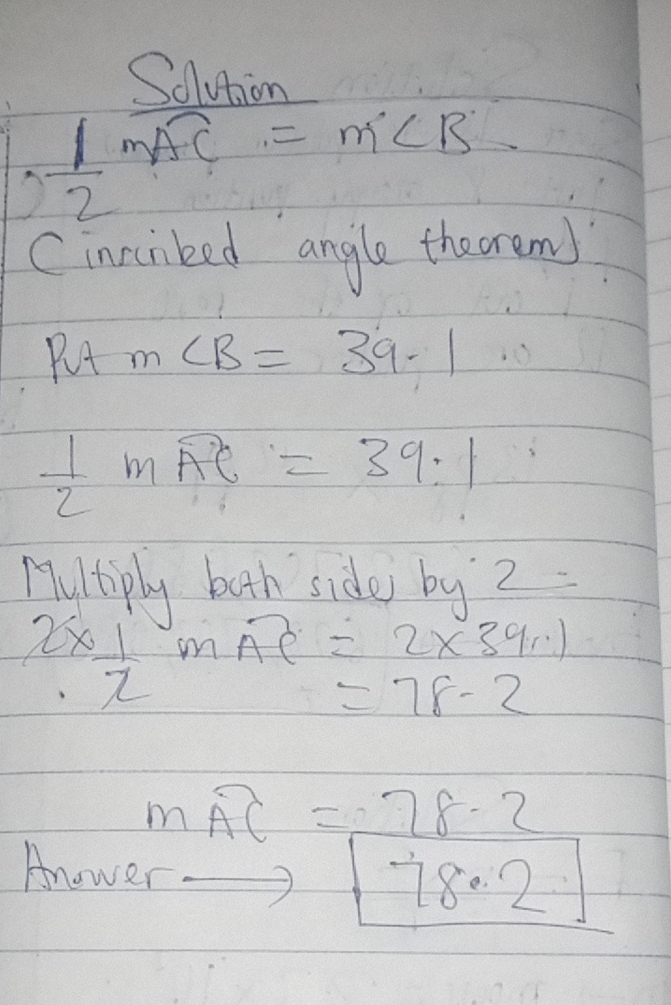 Solution
1/2 mAC = m<B
(inscribed angle theorem)
Put m<B = 39.1
1/2 mAC = 39.1
Multiply both sides by 2 =
2x 1/2 mAC = 2x39.1
= 78.2
mAC = 78.2
Answer → 78.2